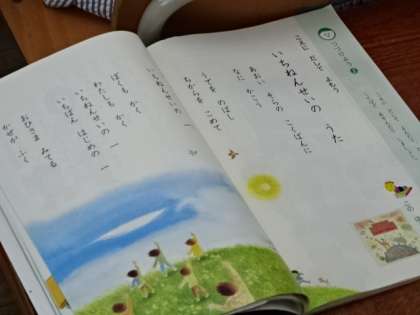 こえに だして よもう
いちねんせいの うた
あおい そらの こくばんに
なに かこう
うでを のばし
ちからを こめて
いちねんせいの
ぼくも かく
わたしも かく
いちねんせいの 一
いちばん はじめの 一
おひさま みてる
かぜが ふく